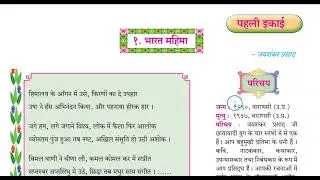 पहली इकाई
१. भारत महिमा
- जयशंकर प्रसाद
हिमालय के आँगन में उसे, किरणों का दे उपहार
उषा ने हँस अभिनंदन किया, और पहनाया हीरक हार ।
जगे हम, लगे जगाने विश्व, लोक में फैला फिर आलोक
व्योमतम पुंज हुआ तब नष्ट, अखिल संसृति हो उठी अशोक ।
विमल वाणी ने वीणा ली, कमल कोमल कर में सप्रीत
सप्तस्वर सप्तसिंधु में उठे, छिड़ा तब मधुर साम संगीत ।
परिचय
जन्म : १८९०, वाराणसी (उ.प्र.)
मृत्यु : १९३७, वाराणसी (उ.प्र.)
परिचय : जयशंकर प्रसाद जी
छायावादी युग के चार स्तंभों में से एक
हैं । आप बहुमुखी प्रतिभा के धनी हैं ।
कवि, नाटककार, कथाकार,
उपन्यासकार तथा निबंधकार के रूप में
आप प्रसिद्ध हैं । आपकी रचनाओं में